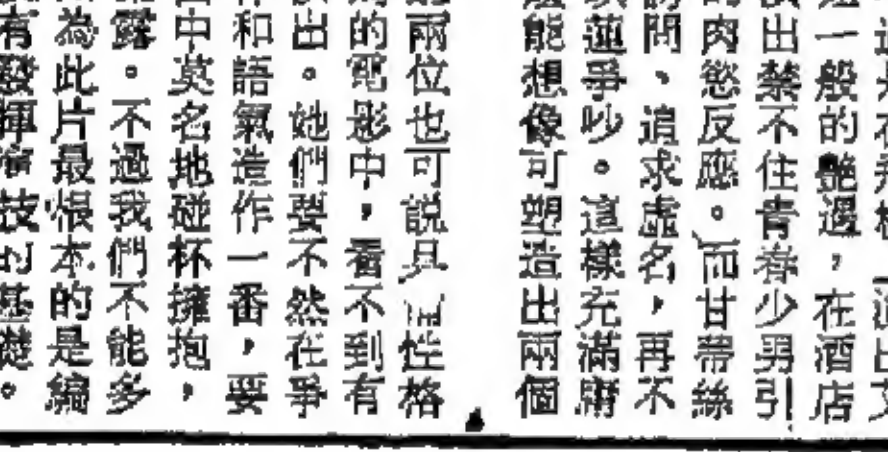 一般的艷遇，在酒店
出禁不住青春少男引
肉慾反應。而甘蒂絲
問、追求虛名，再不
蓮爭吵。這樣充滿庸
能想像可塑造出兩個
兩位也可說具性格
的電影中，看不到有
出。她們要不然在爭
和語氣造作一番，要
中莫名地碰杯擁抱，
露。不過我們不能多
為此片最根本的是編
有發揮演技的基礎。